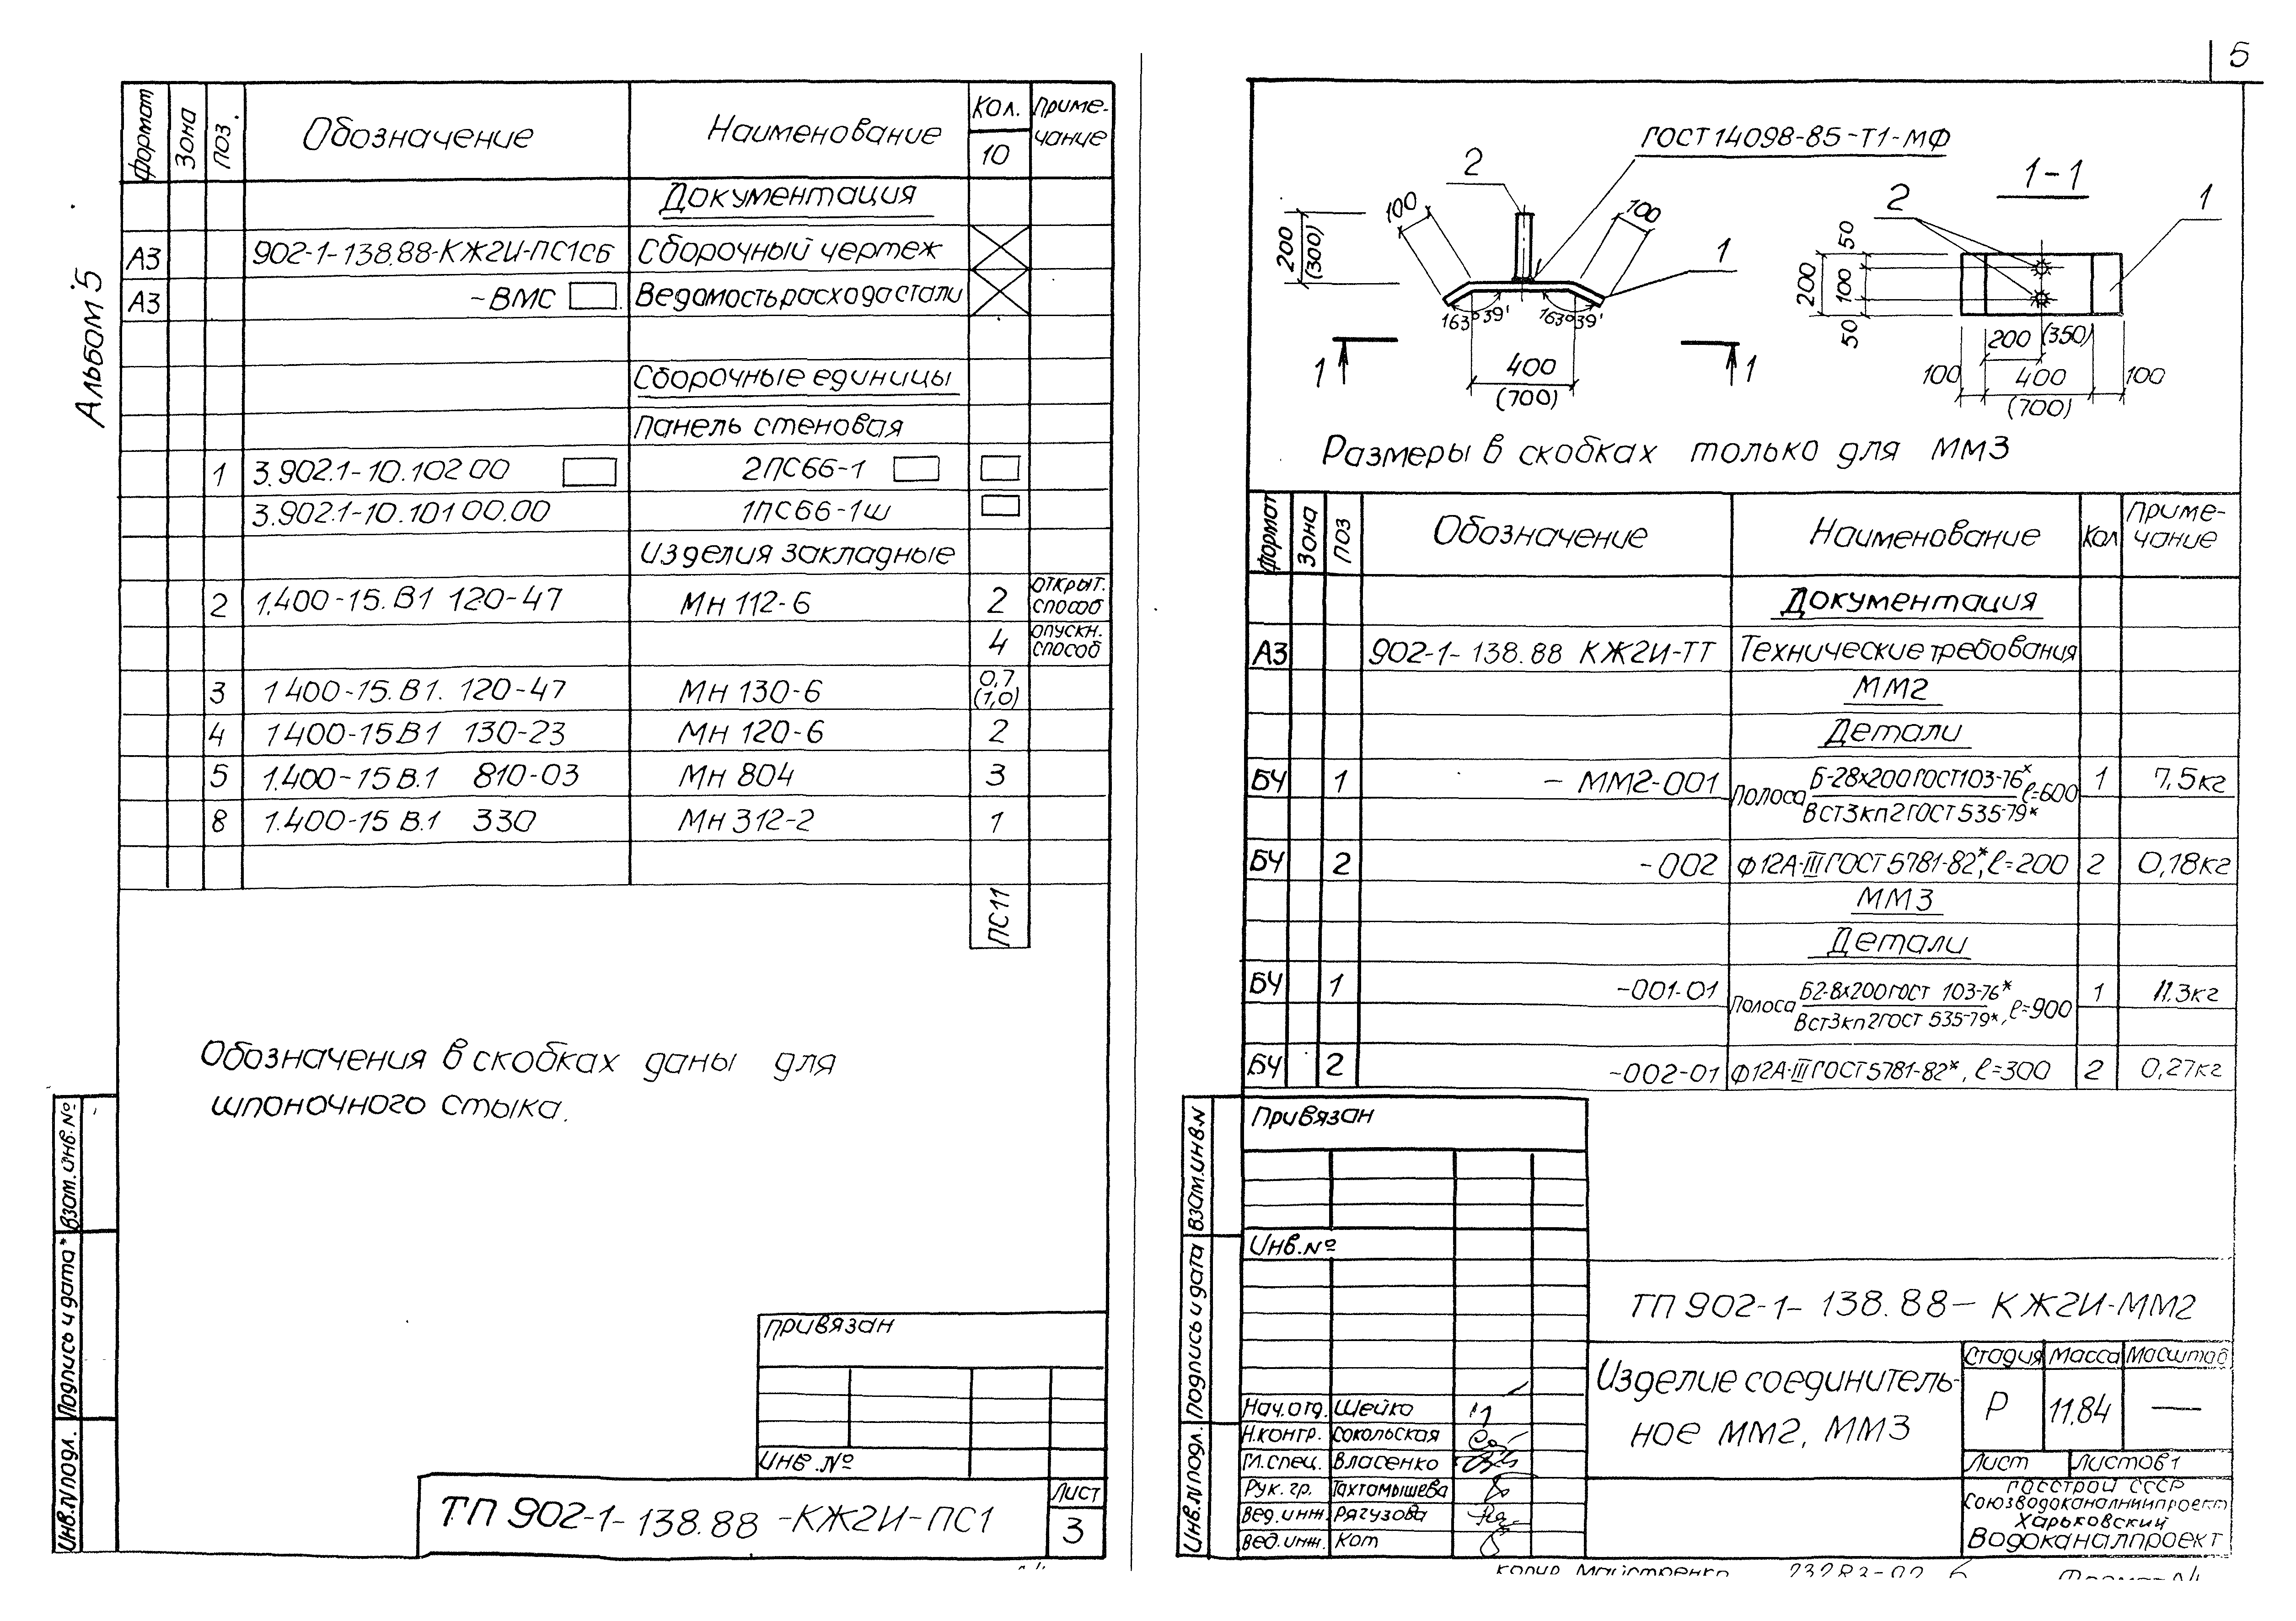 5
Альбом 5
Формат Зона Поз. Обозначение Наименование Кол. Приме-
10 чание
Документация
А3 902-1-138.88-КЖ2И-ПС1СБ Сборочный чертеж
А3 -ВМС Ведомость расхода стали
Сборочные единицы
Панель стеновая
1 3.902.1-10.102 00 2ПС66-1
3.902.1-10.101 00.00 1ПС66-1ш
Изделия закладные
2 1.400-15.В1 120-47 Мн 112-6 2 открыт. способ
4 опускн. способ
3 1 400-15.В1. 120-47 Мн 130-6 0,7 (1,0)
4 1 400-15.В1 130-23 Мн 120-6 2
5 1.400-15 В.1 810-03 Мн 804 3
8 1.400-15 В.1 330 Мн 312-2 1
ПС11
Обозначения в скобках даны для
шпоночного стыка.
Взам. инв. №
Подпись и дата
Инв.N подл.
Привязан
Инв. №
ТП 902-1-138.88-КЖ2И-ПС1
Лист
3
ГОСТ 14098-85-Т1-МФ
2
100
100
200
(300)
1
163°39'
163°39'
1
1
400
(700)
1-1
2
1
50
200
100
50
200 (350)
100 400 100
(700)
Размеры в скобках только для ММ3
Формат Зона Поз Обозначение Наименование Кол Приме-
чание
Документация
А3 902-1-138.88 КЖ2И-ТТ Технические требования
ММ2
Детали
БЧ 1 -ММ2-001 Полоса Б-28х200 ГОСТ 103-76* ℓ=600 1 7,5кг
Вст3кп2 ГОСТ 535-79*
БЧ 2 -002 Ф12А-III ГОСТ 5781-82*, ℓ=200 2 0,18кг
ММ3
Детали
БЧ 1 -001-01 Полоса Б2-8х200 ГОСТ 103-76* 1 11.3кг
Вст3кп2 ГОСТ 535-79*, ℓ=900
БЧ 2 -002-01 Ф12А-III ГОСТ 5781-82*, ℓ=300 2 0,27кг
Взам.инв.N
Подпись и дата
Инв.N подл.
Привязан
Инв.№
ТП 902-1-138.88-КЖ2И-ММ2
Изделие соединитель-
ное ММ2, ММ3
Стадия Масса Масштаб
Р 11,84 —
Лист Листов 1
Нач.отд. Шейко
Н.контр. Сокольская
Гл.спец. Власенко
Рук. гр. Тахтамышева
Вед.инж. Рягузова
Вед.инж. Кот
Госстрой СССР
Союзводоканалниипроект
Харьковский
Водоканалпроект
Копир Майстренко